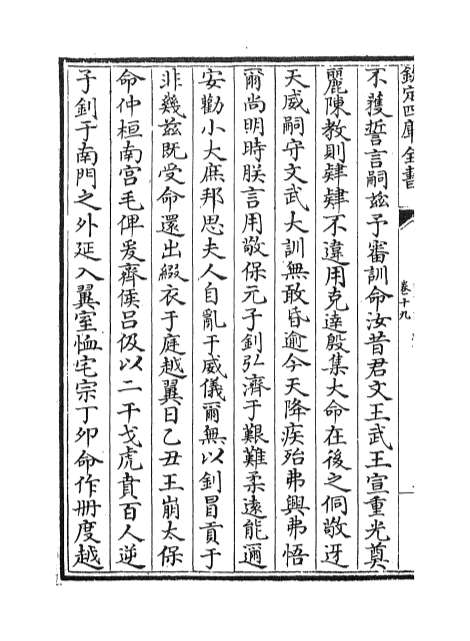 欽定四庫全書
卷十九
不獲誓言嗣茲予審訓命汝昔君文王武王宣重光奠
麗陳教則肄肄不違用克達殷集大命在後之侗敬迓
天威嗣守文武大訓無敢昏逾今天降疾殆弗興弗悟
爾尚明時朕言用敬保元子釗弘濟于艱難柔遠能邇
安勸小大庶邦思夫人自亂于威儀爾無以釗冒貢于
非幾茲既受命還出綴衣于庭越翼日乙丑王崩太保
命仲桓南宮毛俾爰齊侯呂伋以二干戈虎賁百人逆
子釗于南門之外延入翼室恤宅宗丁卯命作冊度越